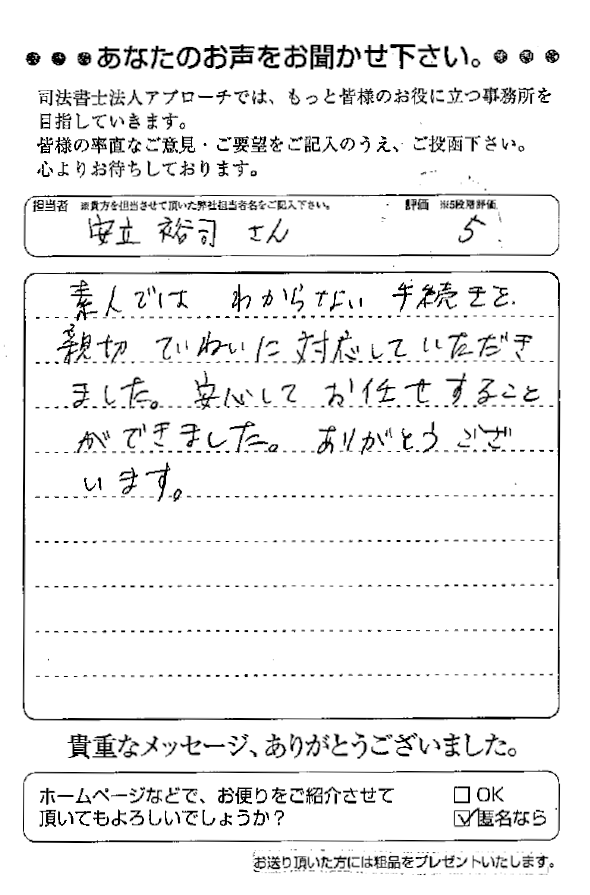 あなたのお声をお聞かせ下さい。
司法書士法人アプローチでは、もっと皆様のお役に立つ事務所を
目指していきます。
皆様の率直なご意見・ご要望をご記入のうえ、ご投函下さい。
心よりお待ちしております。
担当者 ※貴方を担当させて頂いた弊社担当者名をご記入下さい。 評価 ※5段階評価
安立 裕司 さん 5
素人では わからない 手続きを
親切 ていねいに 対応して いただき
ました。 安心して お任せすること
ができました。 ありがとう ござ
います。
貴重なメッセージ、ありがとうございました。
ホームページなどで、お便りをご紹介させて
頂いてもよろしいでしょうか？
□ OK
☑ 匿名なら
お送り頂いた方には粗品をプレゼントいたします。